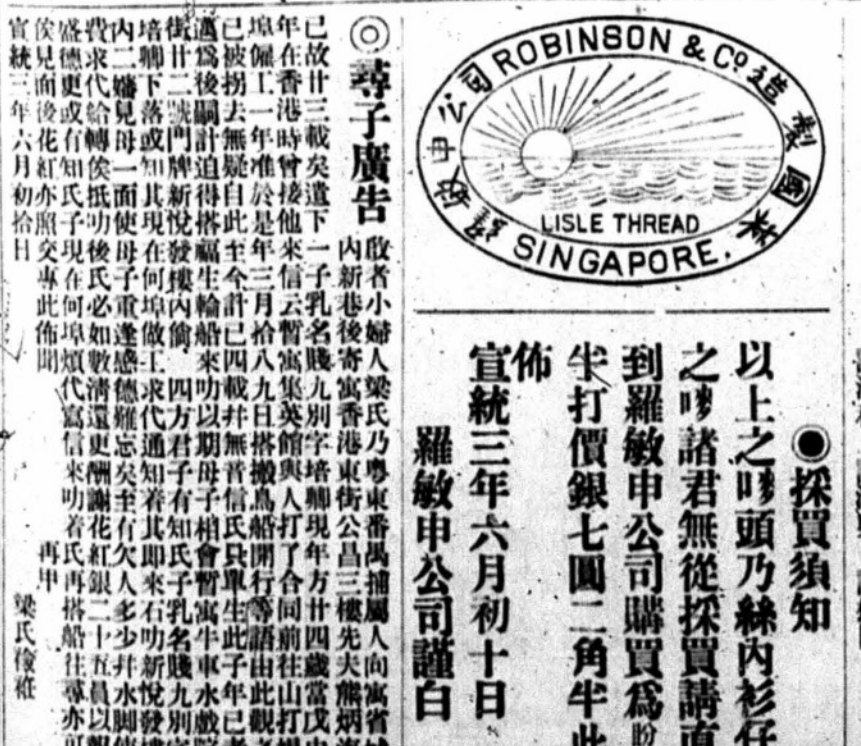 ROBINSON & Co
羅敏申公司
英國製造
LISLE THREAD
SINGAPORE.
◉採買須知
以上之嘜頭乃絲內衫仔
之嘜諸君無從採買請直
到羅敏申公司購買爲盼
半打價銀七圓二角半此
佈
宣統三年六月初十日
羅敏申公司謹白
◎尋子廣告
啟者小婦人梁氏乃粵東番禺捕屬人向寓省城
內新巷後寄寓香港東街公昌三樓先夫熊炳
已故廿三載矣遺下一子乳名賤九別字培聊現年方廿四歲當戊申
年在香港時曾接他來信云暫寓集英館與人打了合同前往山打根
埠僱工一年准於是年三月拾八九日搭搬鳥船開行等語由此觀之
已被拐去無疑自此至今計已四載并無音信氏只單生此子年已老
邁爲後嗣計迫得搭福生輪船來叻以期母子相會暫寓牛車水戲院
街廿二號門牌新悅發樓內倘四方君子有知氏子乳名賤九別字
培聊下落或知其現在何埠做工求代通知着其即來石叻新悅發樓
內二嬸見母一面使母子重逢感德難忘矣至有欠人多少并水脚使
費求代給轉俟抵叻後氏必如數清還更酬謝花紅銀二十五員以報
盛德更或有知氏子現在何埠煩代寫信來叻着氏再搭船往尋亦可
俟見面後花紅亦照交專此佈聞 再申
宣統三年六月初拾日 梁氏儉